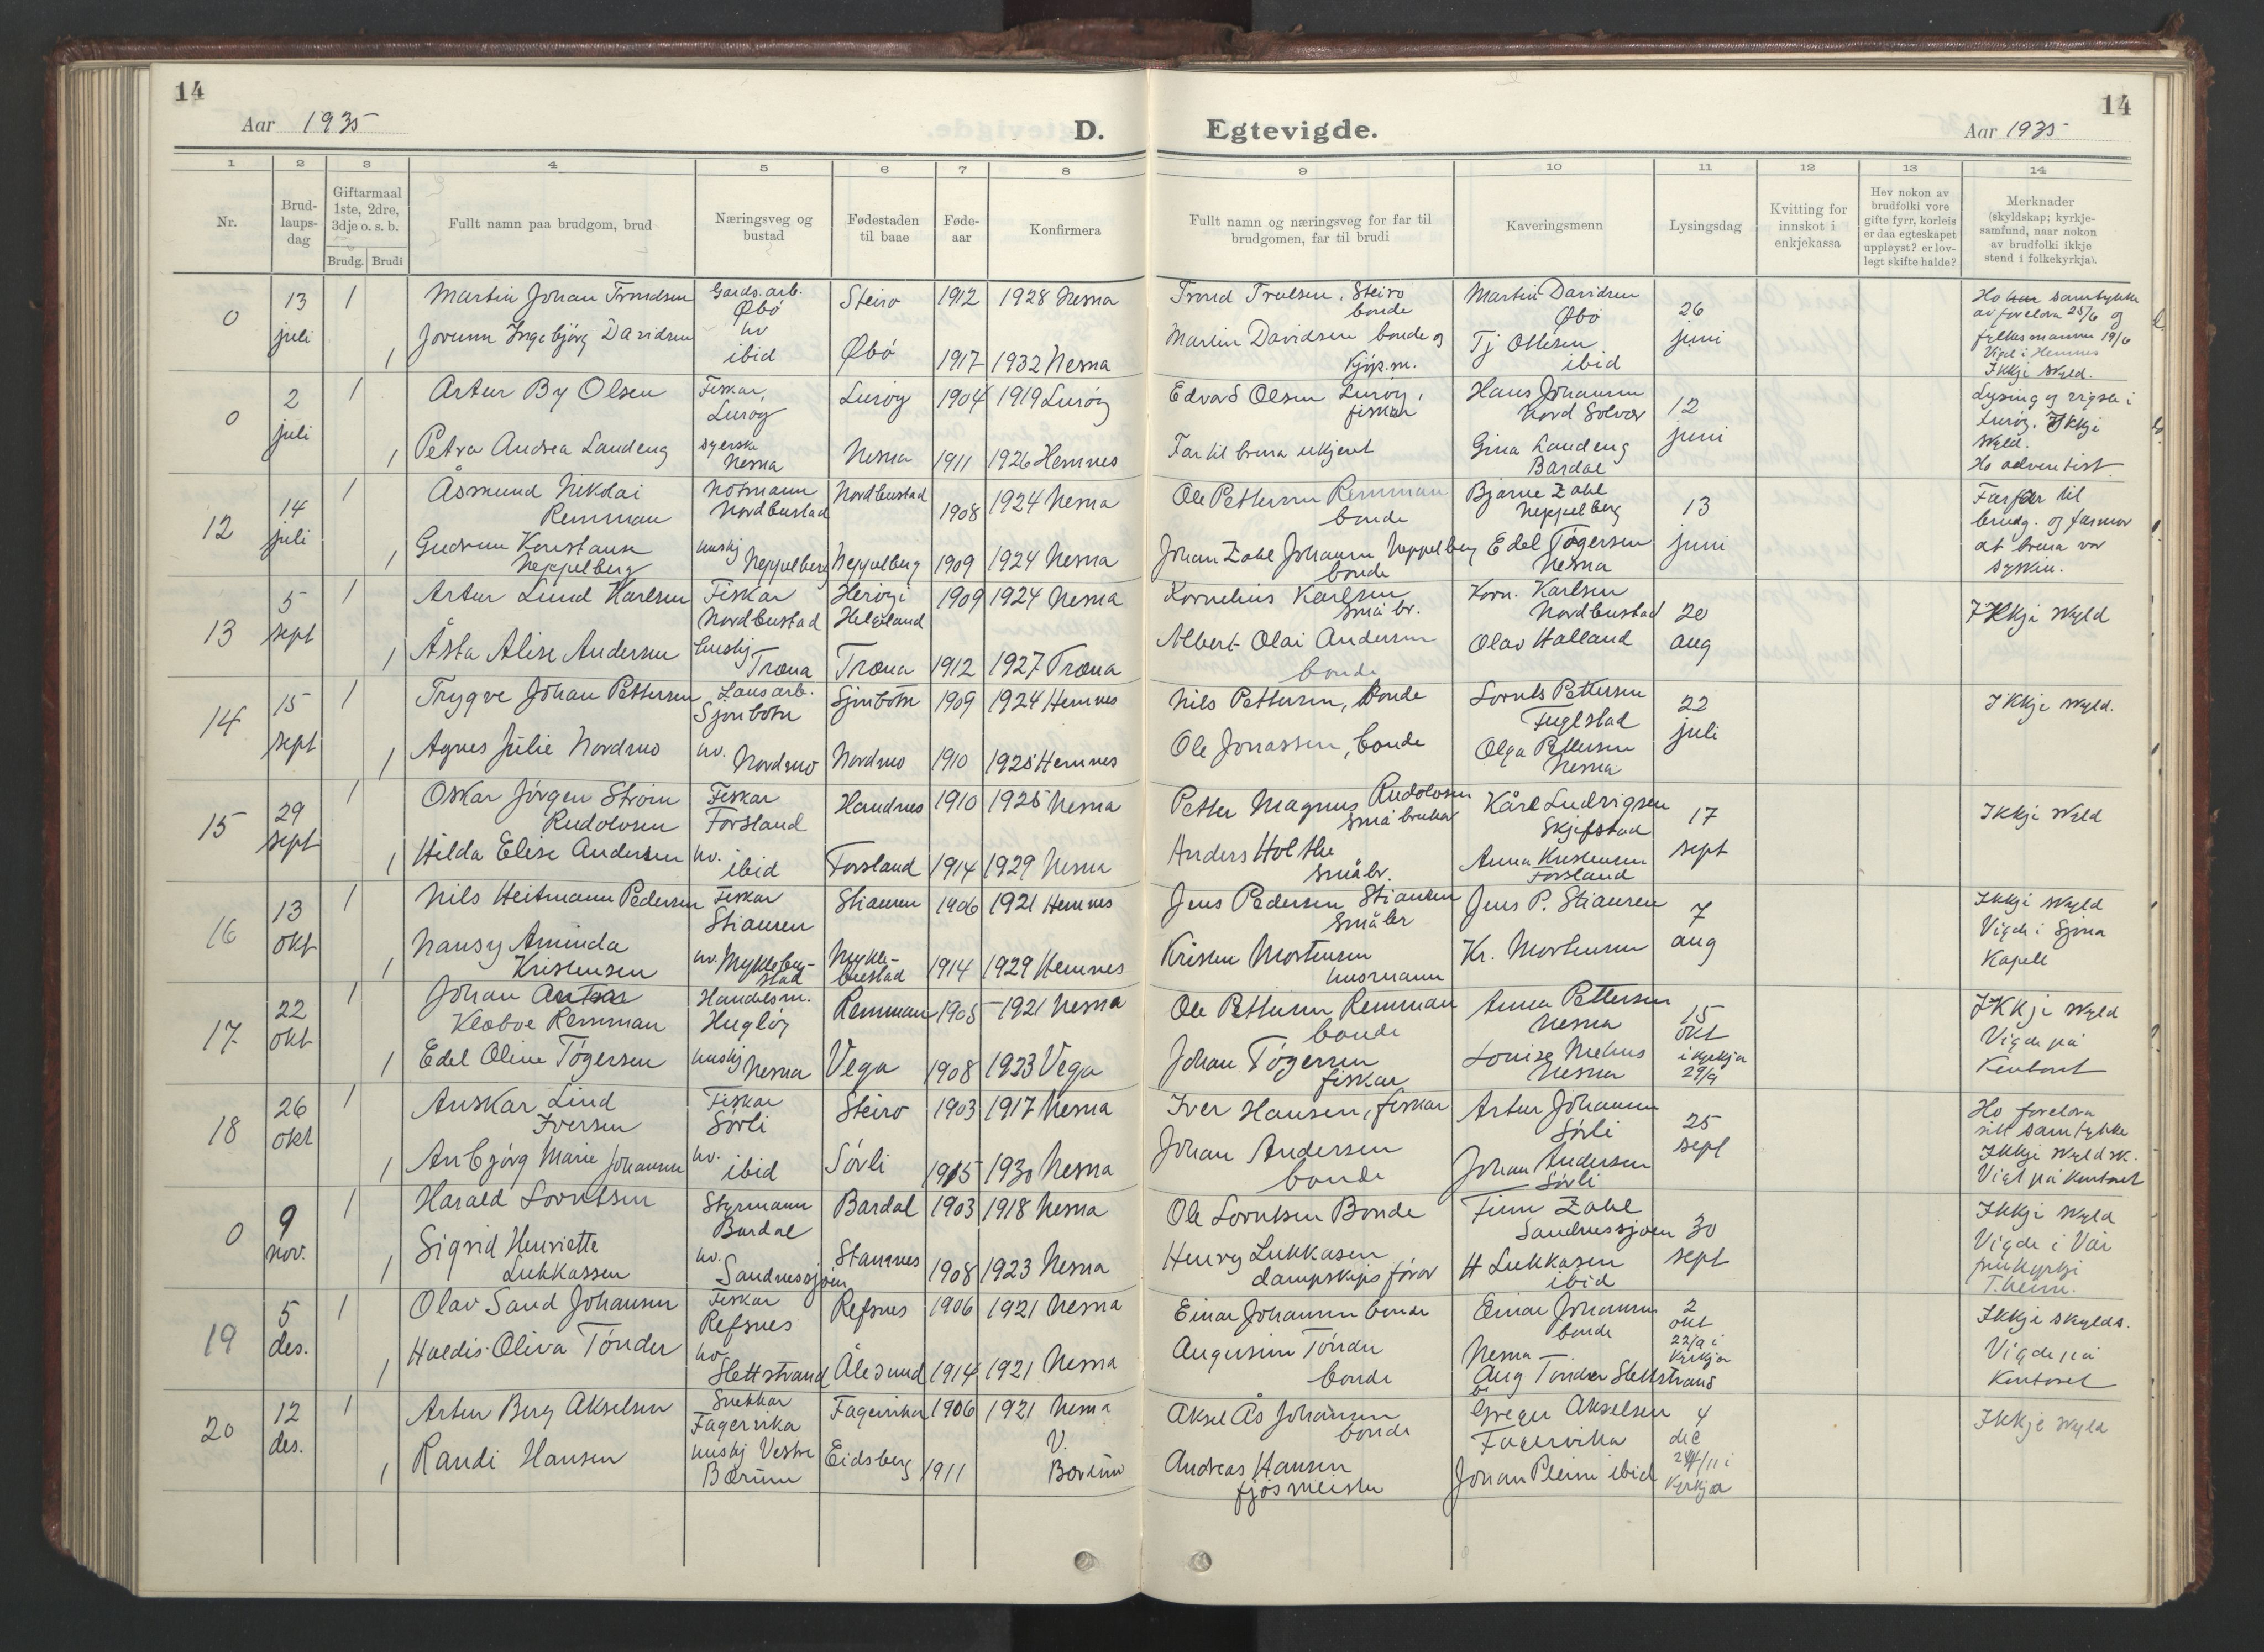 14
Aar 1935
D.
Egtevigde.
14
Aar 1935
1 2 3 4 5 6 7 8 9 10 11 12 13 14
Nr.
Brud-
laups-
dag
Giftarmaal
1ste, 2dre,
3dje o. s. b.
Brudg. Brudi
Fullt namn paa brudgom, brud
Næringsveg og
bustad
Fødestaden
til baae
Føde-
aar
Konfirmera
Fullt namn og næringsveg for far til
brudgomen, far til brudi
Kaveringsmenn
Lysingsdag
Kvitting for
innskot i
enkjekassa
Hev nokon av
brudfolki vore
gifte fyrr, korleis
er daa egteskapet
uppløyst? er lov-
legt skifte halde?
Merknader
(skyldskap; kyrkje-
samfund, naar nokon
av brudfolki ikkje
stend i folkekyrkja).
0
13
juli
1
Martin Johan Trondsen
Gards.arb.
Øbø
Steiro
1912
1928 Nesna
Trond Trulsen, Steiro
bonde
Martin Davidsen
Øbø
26
juni
Ho samtykke
av foreldra 25/6 og
fylkesmannen 19/6
Vigd i Hemnes
Ikkji skyld.
1
Jorunn Ingebjörg Davidsen
hv
ibid
Øbø
1917
1932 Nesna
Martin Davidsen bonde og
kjøpm.
Tj Ottesen
ibid
0
2
juli
1
Artur By Olsen
Fiskar,
Lurøy
Lurøy
1904
1919 Lurøy
Edvard Olsen Lurøy,
fiskar
Hans Johansen
Nord Solvær
12
juni
Lysing og vigsla i
Lurøy. Ikkji
skyld.
Ho adventist
1
Petra Andrea Landeng
syerska
Nesna
Nesna
1911
1926 Hemnes
Far til brura ukjent
Gina Landeng
Bardal
12
14
juli
1
Åsmund Nikolai
Remman
Notmann
Nordbustad
Nordbustad
1908
1924 Nesna
Ole Pettersen Remman
bonde
Bjarne Zahl
Neppelberg
13
juni
Farfar til
brudg. og farmor
åt brura var
syskin.
1
Gudrun Konstanse
Neppelberg
hushj
Neppelberg
Neppelberg
1909
1924 Nesna
Johan Zahl Johansen Neppelberg
bonde
Edel Tøgersen
Nesna
13
5
sept
1
Artur Lund Karlsen
Fiskar
Nordbustad
Herøy i
Helgeland
1909
1924 Nesna
Kornelius Karlsen
småbr.
Korn. Karlsen
Nordbustad
20
aug
Ikkji skyld
1
Åsta Alise Andersen
hushj
Træna
Træna
1912
1927 Træna
Albert Olai Andersen
bonde
Olav Halland
14
15
sept
1
Trygve Johan Pettersen
Lausarb.
Sjonbotn
Sjonbotn
1909
1924 Hemnes
Nils Pettersen, bonde
Lornts Pettersen
Fuglstad
22
juli
Ikkji skyld.
1
Agnes Julie Nordmo
hv.
Nordmo
Nordmo
1910
1925 Hemnes
Ole Jonassen, bonde
Olga Pettersen
Nesna
15
29
sept
1
Oskar Jørgen Strøm
Rudolvsen
Fiskar
Forsland
Handnes
1910
1925 Nesna
Petter Magnus Rudolvsen
småbrukar
Kåre Ludvigsen
Skjefstad
17
sept
Ikkji skyld
1
Hilda Elise Andersen
hv.
ibid
Forsland
1914
1929 Nesna
Anders Holthe
småbr.
Anna Kristensen
Forsland
16
13
okt
1
Nils Heitmann Pedersen
Fiskar
Stiauren
Stiauren
1906
1921 Hemnes
Jens Pedersen Stiauren
småbr
Jens P. Stiauren
7
aug
Ikkji skyld
Vigde i Sjona
Kapell
1
Nansy Aminda
Kristensen
hv. Myklebu-
stad
Mykle-
bustad
1914
1929 Hemnes
Kristen Mortensen
husmann
Kr. Mortensen
17
22
okt
1
Johan Anton
Klobve Remman
Handelsm.
Hugløy
Remman
1905
1921 Nesna
Ole Pettersen Remman
bonde
Anna Pettersen
Nesna
15
okt
i kyrkja
29/9
Ikkji skyld
Vigde på
Kontoret
1
Edel Oline Tøgersen
hushj
Nesna
Vega
1908
1923 Vega
Johan Tøgersen
fiskar
Louise Mehus
Nesna
18
26
okt
1
Anskar Lind
Iversen
Fiskar
Sørli
Steiro
1903
1917 Nesna
Iver Hansen, fiskar
Artur Johansen
Sørli
25
sept
Ho foreldra
sitt samtykke
Ikkji skyldsk.
Vigt på Kontoret
1
Anbjørg Marie Johansen
hv.
ibid
Sørli
1915
1930 Nesna
Johan Andersen
bonde
Johan Andersen
Sørli
0
9
nov.
1
Harald Lorntsen
Styrmann
Bardal
Bardal
1903
1918 Nesna
Ole Lorntsen Bonde
Finn Zahl
Sandnessjøen
30
sept
Ikkji skyld
Vigde i Vår
frukyrkji
T.heim.
1
Sigrid Henriette
Lukkassen
hv.
Sandnessjøen
Stamnes
1908
1923 Nesna
Henry Lukkasen
dampskipsførar
H Lukkasen
ibid
19
5
des.
1
Olav Sand Johansen
Fiskar
Refsnes
Refsnes
1906
1921 Nesna
Einar Johansen bonde
Einar Johansen
bonde
Nesna
2
okt
22/9 i
kyrkja
Ikkji skylds.
Vigde på
Kontoret
1
Haldis Oliva Tønder
hv
Slettstrand
Ålesund
1914
1921 Nesna
Augusinus Tønder
bonde
Aug Tønder Slettstrand
20
12
des.
1
Artur Berg Akselsen
Snekkar
Fagervika
Fagervika
1906
1921 Nesna
Aksel Ås Johansen
bonde
Greger Akselsen
Fagervika
4
dec
24/11 i
Kyrkja
Ikkje skyld
1
Randi Hansen
hushj Vestre
Bærum
Eidsberg
1911
V.
Bærum
Andreas Hansen
fjøsmeister
Johan Pleim ibid